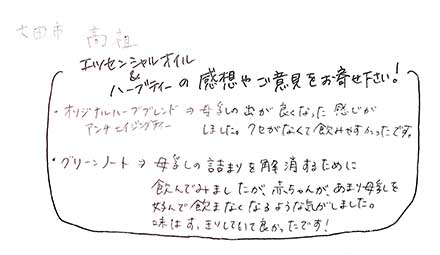 太田市 高祖
エッセンシャルオイル
&
ハーブティーの感想やご意見をお寄せ下さい!
・オリジナルハーブブレンド → 母乳の出が良くなった感じが
アンチエイジングティー しました。クセがなくて飲みやすかったです。
・グリーンノート → 母乳の詰まりを解消するために
飲んでみましたが、赤ちゃんが、あまり母乳を
好んで飲まなくなるような気がしました。
味はすっきりしていて良かったです!